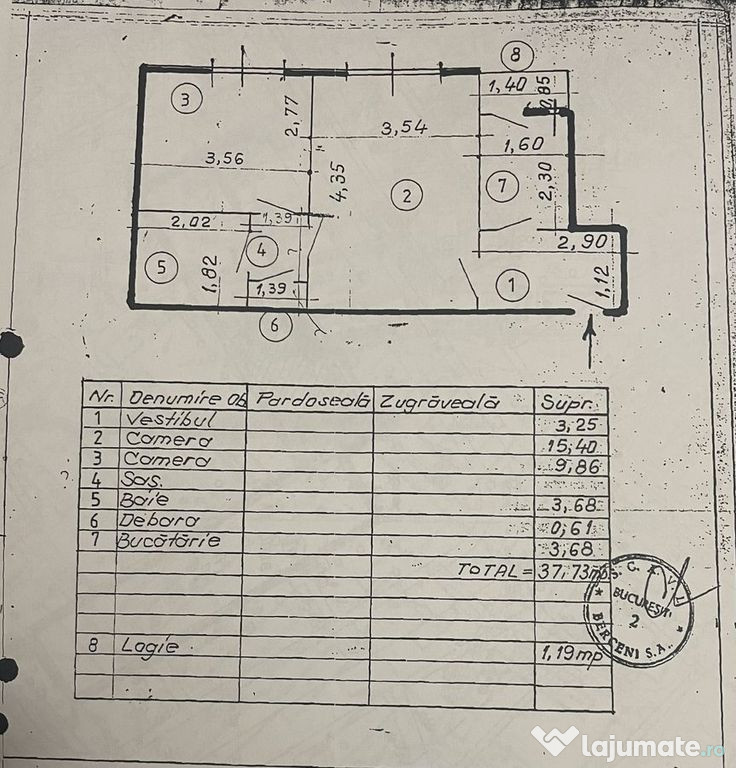 8
1,40
0,85
3
2,77
3,54
1,60
3,56
4,35
2
7
2,30
2,02
1,39
4
2,90
5
1,82
1
1,12
1,39
6
Nr. Denumire Pardoseală Zugrăveală Supr.
1 Vestibul 3,25
2 Camera 15,40
3 Camera 9,86
4 Sas.
5 Baie 3,68
6 Debara 0,61
7 Bucătărie 3,68
TOTAL = 37,73mp
8 Logie 1,19mp
BUCUREȘTI
2
BERCENI S.A.
lajumate.ro